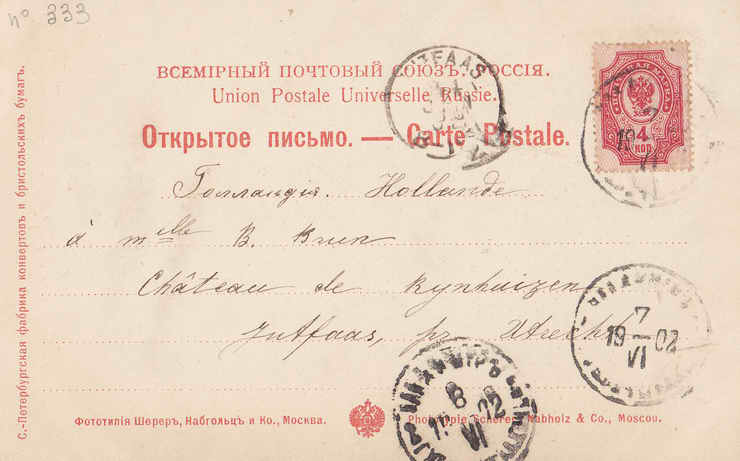 nº 333
ВСЕМІРНЫЙ ПОЧТОВЫЙ СОЮЗЪ. РОССІЯ.
Union Postale Universelle Russie.
Открытое письмо. — Carte Postale.
JUTFAAS
4
КОП
7
19
VI
Голландія. Hollande
à mlle B. Brun
Château de Rynhuizen
Jutfaas, pr Utrecht
7
19 02
VI
ВЛАДИМІРЪ
8
02
VI
Фототипія Шереръ, Набгольцъ и Ко., Москва.
Phototypie Scherer, Nabholz & Co., Moscou.
С.-Петербургская фабрика конвертовъ и бристольскихъ бумагъ.